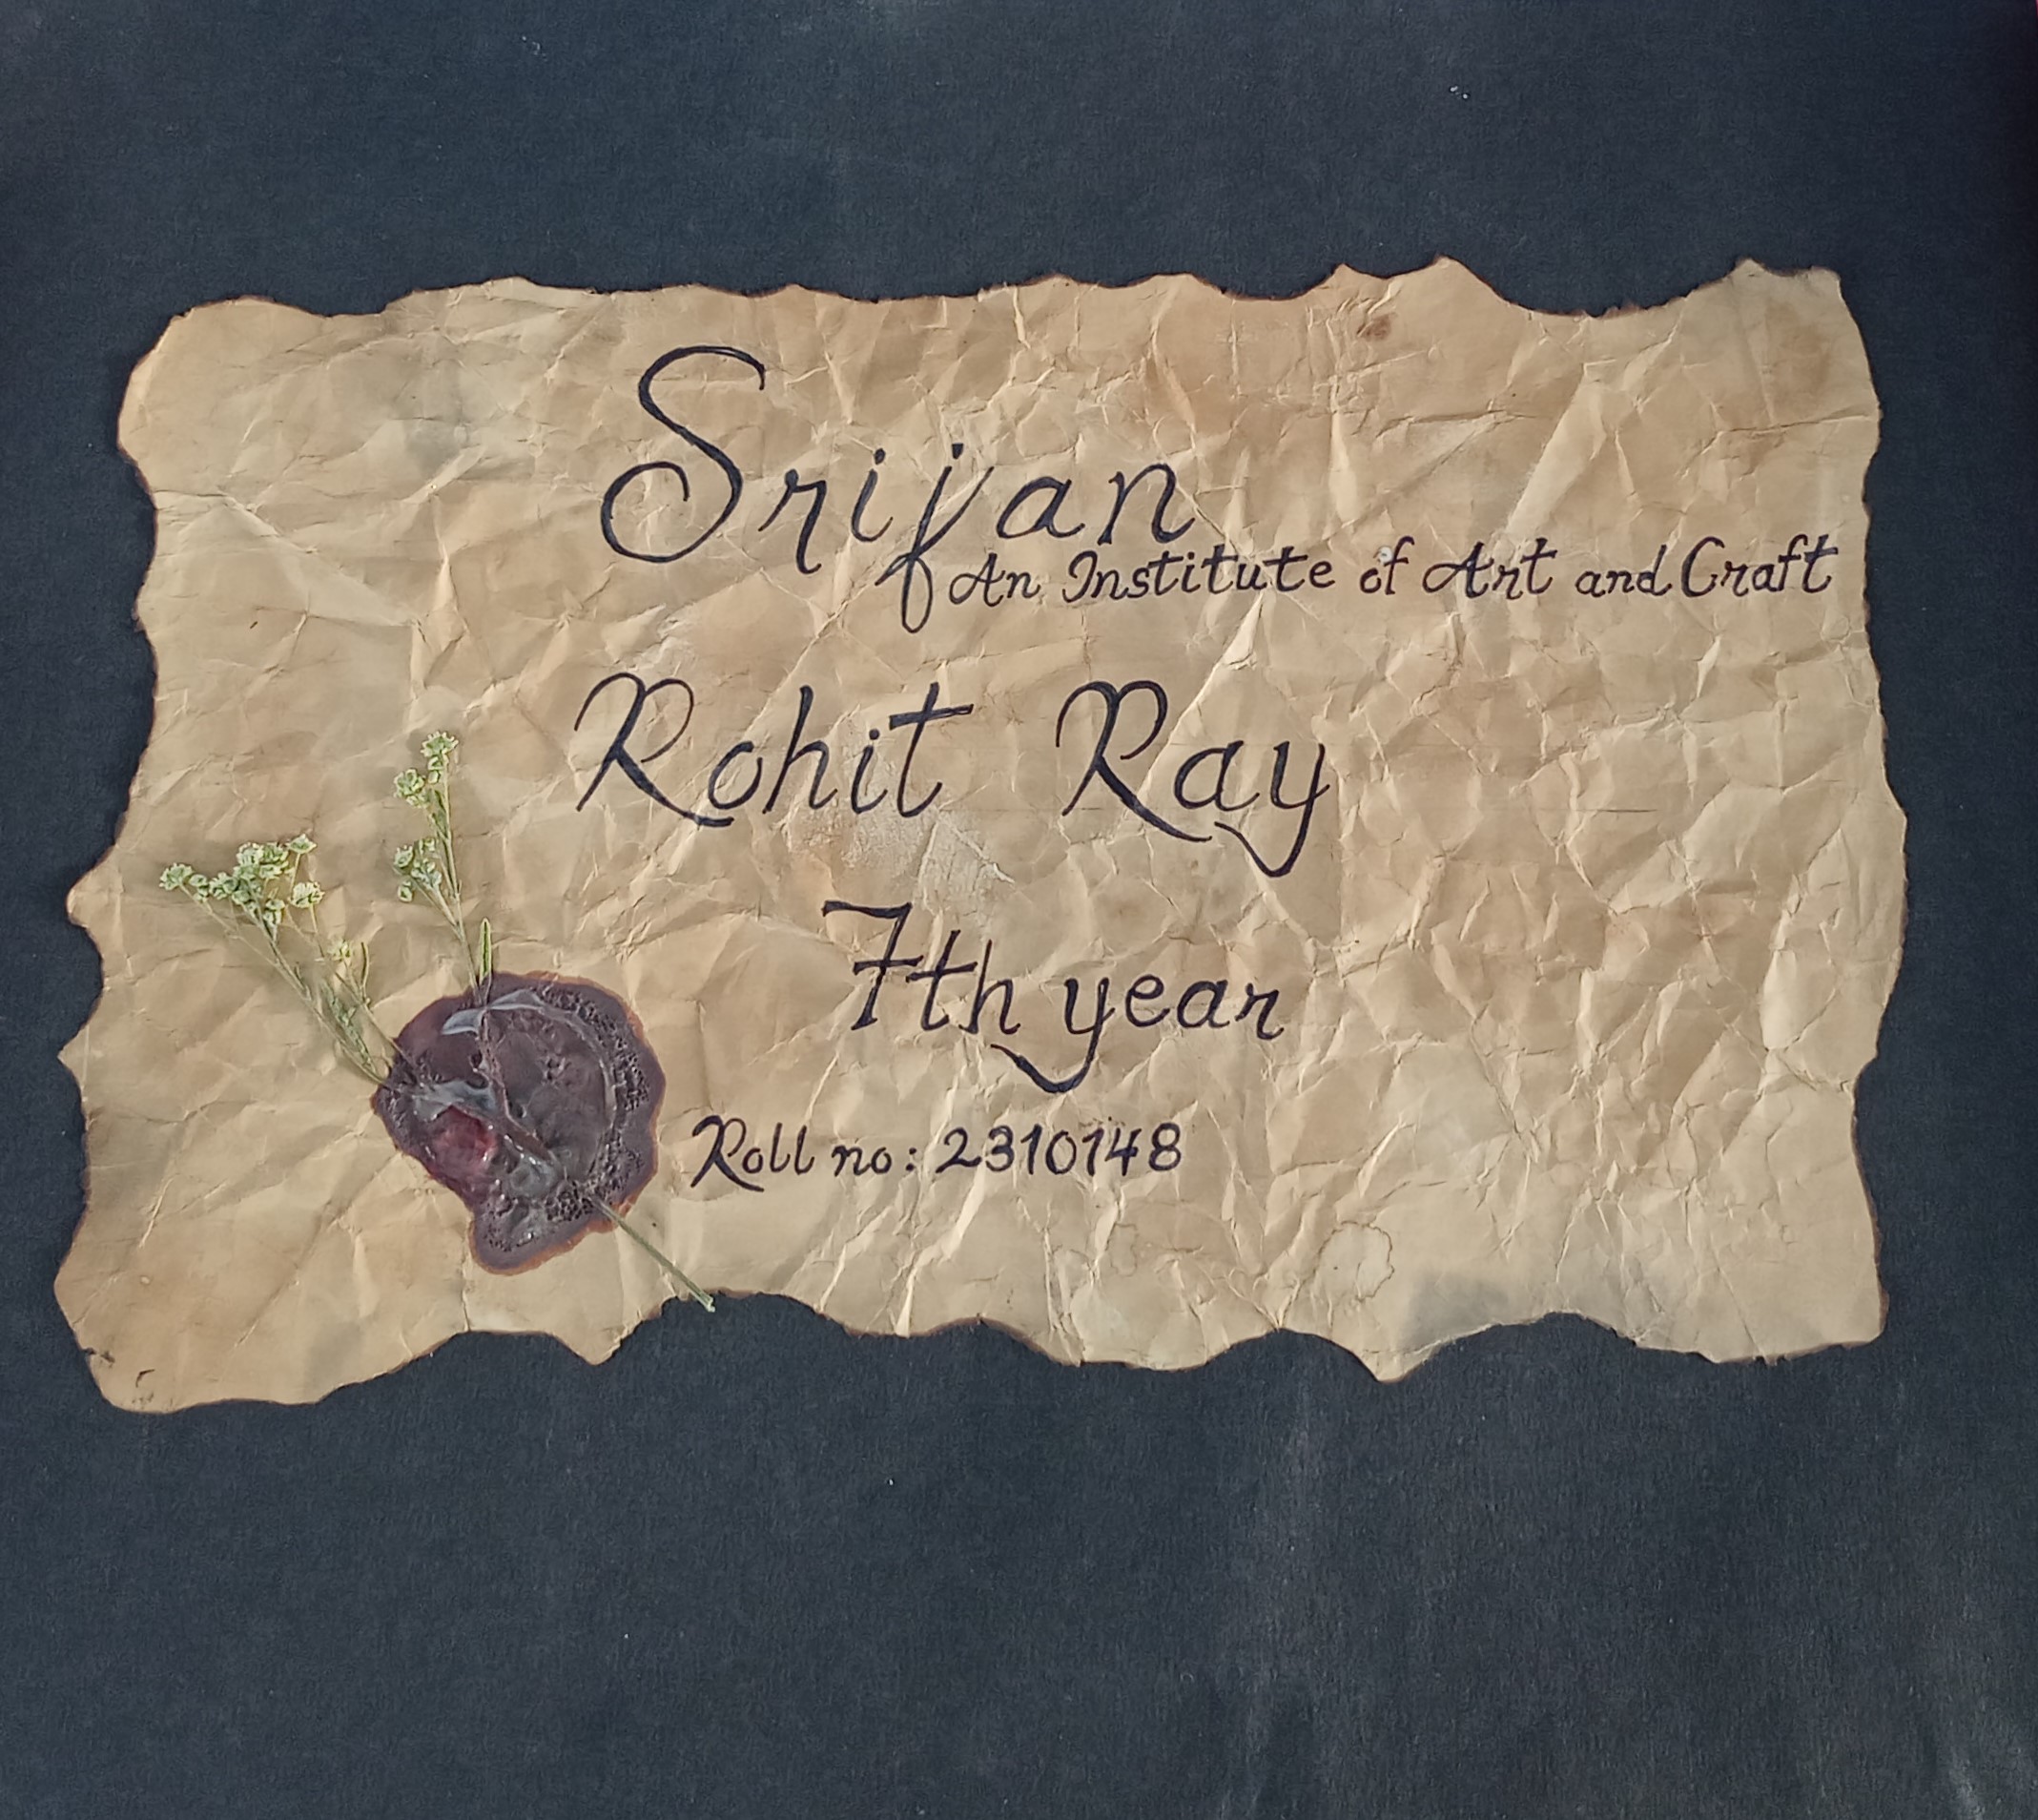 Srijan
An Institute of Art and Craft
Rohit Ray
7th year
Roll no: 2310148